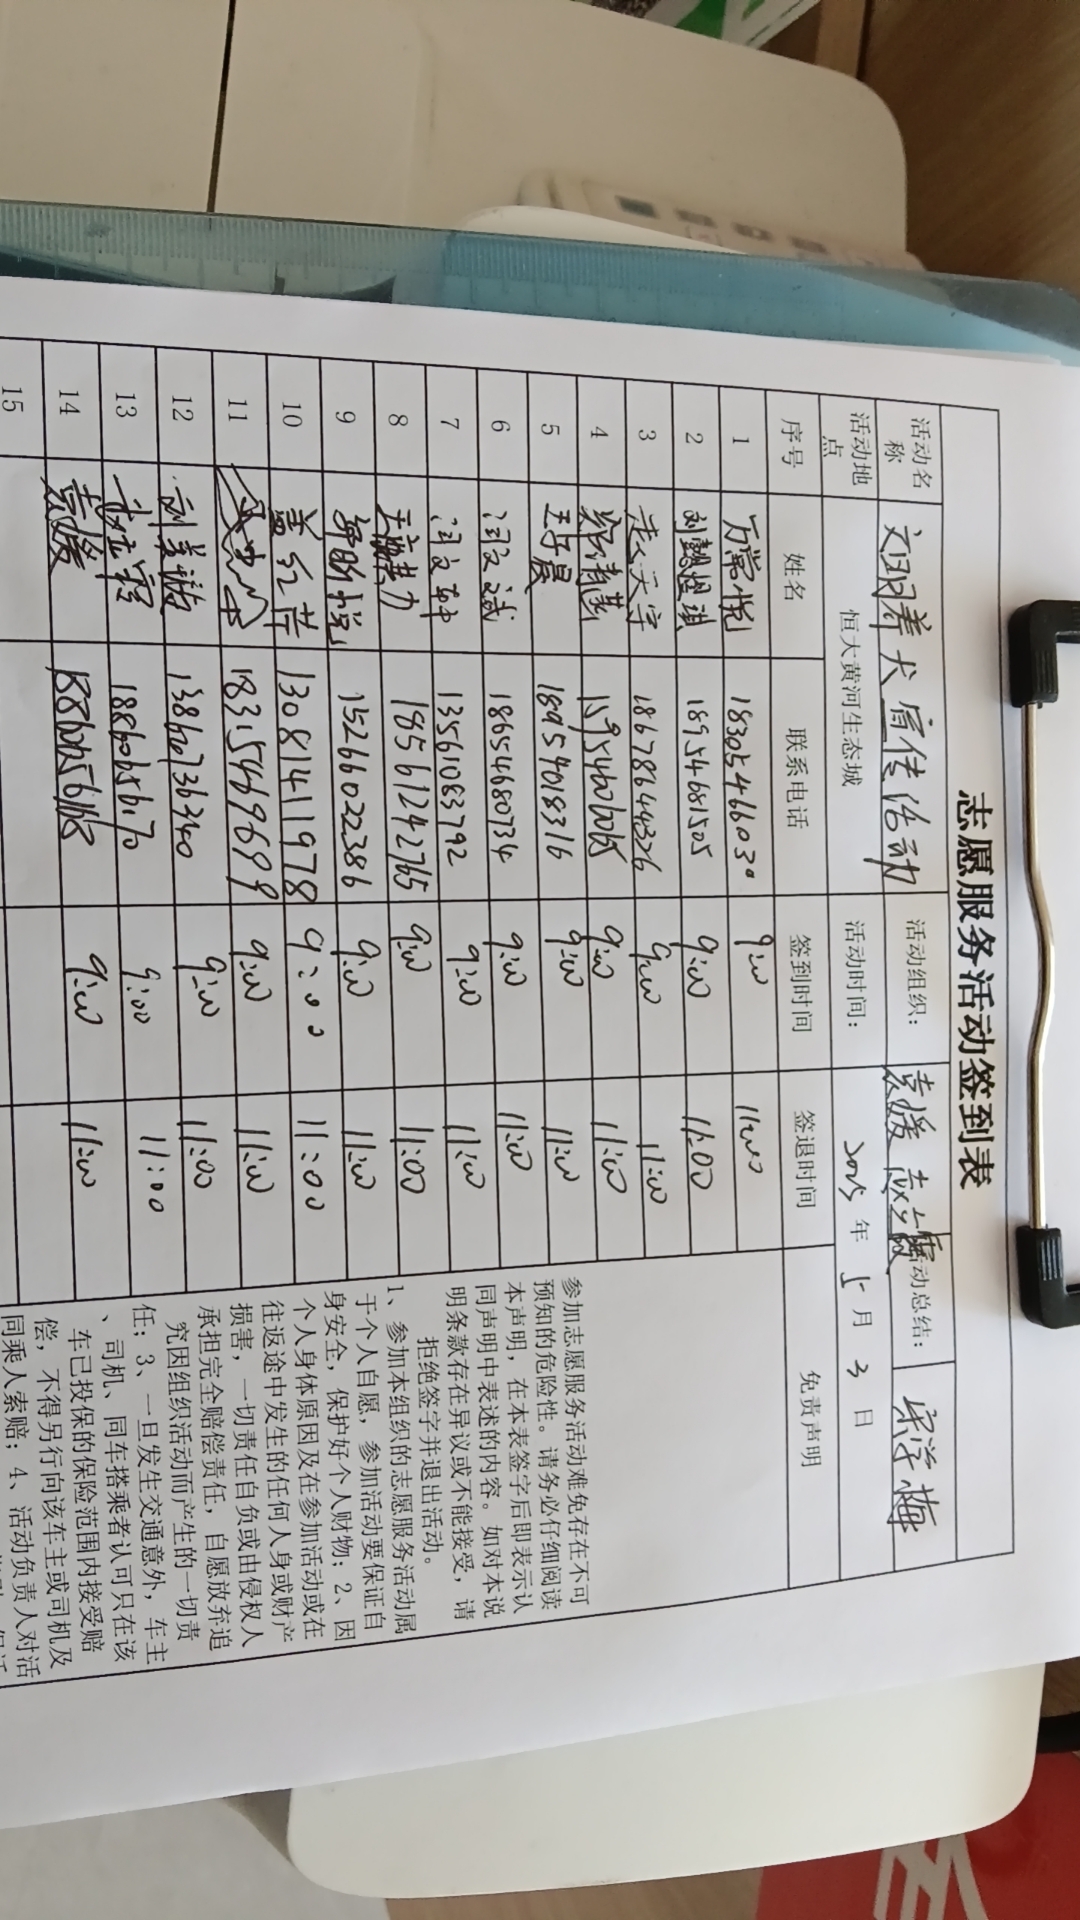 志愿服务活动签到表
活动名称 文明养犬宣传活动 活动组织： 袁媛 活动总结： 宋学梅
活动地点 恒大黄河生态城 活动时间： 2025年5月3日
序号 姓名 联系电话 签到时间 签退时间 免责声明
1 万常悦 18305466030 9:00 11:00
2 刘懿煊琪 18954681505 9:00 11:00
3 赵天宇 18678644326 9:00 11:00
4 郑清基 15954606065 9:00 11:00
5 王子晨 18954018316 9:00 11:00
6 闫文诚 18654680734 9:00 11:00
7 闫文轩 13561083792 9:00 11:00
8 18561242765 9:00 11:00
9 15266022386 9:00 11:00
10 盖红苗 13081411978 9:00 11:00
11 18315469699 9:00 11:00
12 刘美 13867336340 9:00 11:00
13 18860656170 9:00 11:00
14 袁媛 9:00 11:00
15
参加志愿服务活动难免存在不可
预知的危险性。请务必仔细阅读
本声明，在本表签字后即表示认
同声明中表述的内容。如对本说
明条款存在异议或不能接受，请
拒绝签字并退出活动。
1、参加本组织的志愿服务活动属
于个人自愿，参加活动要保证自
身安全，保护好个人财物；2、因
个人身体原因及在参加活动或在
往返途中发生的任何人身或财产
损害，一切责任自负或由侵权人
承担完全赔偿责任，自愿放弃追
究因组织活动而产生的一切责
任；3、一旦发生交通意外，车主
、司机、同车搭乘者认可只在该
车已投保的保险范围内接受赔
偿，不得另行向该车主或司机及
同乘人索赔；4、活动负责人对活